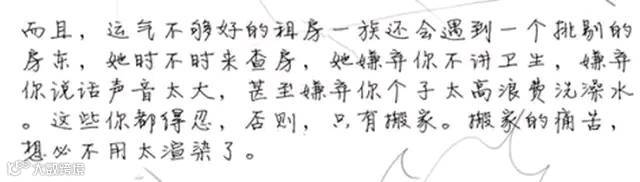 而且，运气不够好的租房一族还会遇到一个挑剔的
房东，她时不时来查房，她嫌弃你不讲卫生，嫌弃
你说话声音太大，甚至嫌弃你个子太高浪费洗澡水
。这些你都得忍，否则，只有搬家。搬家的痛苦，
想必不用太渲染了。
大数跨境